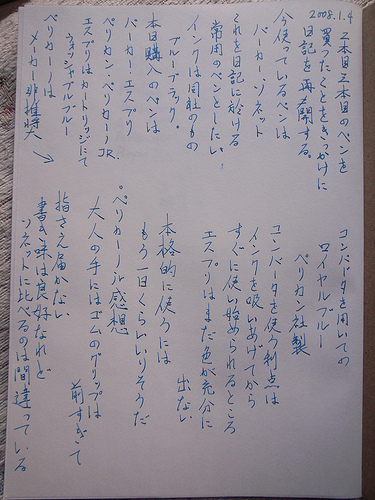 2008.1.4
2本目3本目のペンを
買ったことをきっかけに
日記を再開する。
今使っているペンは
パーカー・ソネット
これを日記に於ける
常用のペンとしたい!
インクは同社のもの
ブルーブラック。
本日購入のペンは
パーカー・エスプリ
ペリカン・ペリカーノJR.
エスプリはカートリッジにて
ウォッシャブルブルー
ペリカーノは
メーカー非推奨
コンバータを用いての
ロイヤルブルー
ペリカン社製
コンバータを使う利点は
インクを吸いあげてから
すぐに使い始められるところ
エスプリはまだ色が充分に
出ない
本格的に使うには
もう一日くらいいりそうだ
°ペリカーノJr感想
大人の手にはゴムのグリップは
前すぎて
指さえ届かない
書き味は良好なれど
ソネットに比べるのは間違っている